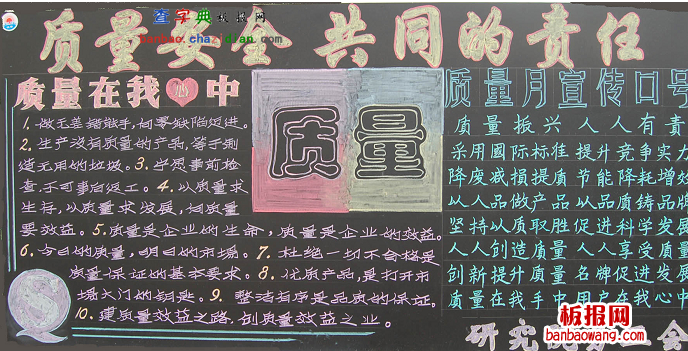 质量安全 共同的责任
查字典板报网
banbao.chazidian.com
质量在我心中
1. 做无差错能手，向零缺陷迈进。
2. 生产没有质量的产品，等于制
造无用的垃圾。3. 宁愿事前检
查，不可事后返工。4. 以质量求
生存，以质量求发展，向质量
要效益。5. 质量是企业的生命，质量是企业的效益。
6. 今日的质量，明日的市场。7. 杜绝一切不合格是
质量保证的基本要求。8. 优质产品，是打开市
场大门的钥匙。9. 整洁有序是品质的保证。
10. 建质量效益之路，创质量效益之业。
质量
质量月宣传口号
质量振兴 人人有责
采用國际标准 提升竞争实力
降废减损提质 节能降耗增效
以人品做产品 以品质铸品牌
坚持以质取胜 促进科学发展
人人创造质量 人人享受质量
创新提升质量 名牌促进发展
质量在我手中 用户在我心中
研究
会
板报网
banbaowang.com